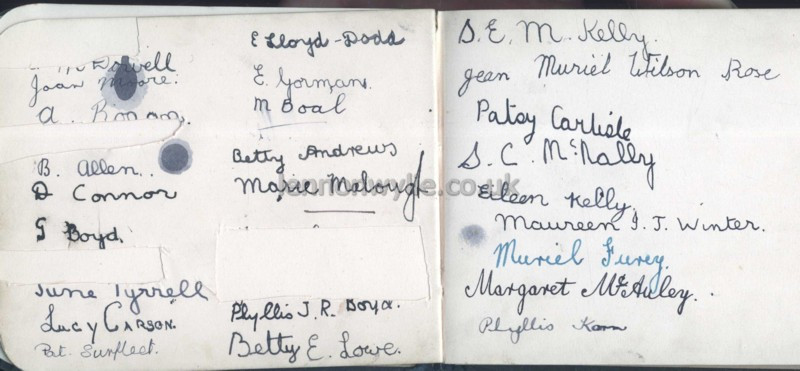 McDowell
Joan Moore.
A. Bonar.
B. Allen.
D Connor
G Boyd.
June Tyrrell
Lucy Carson.
Pat. Sunfleet.
E Lloyd-Dodd
E. Gorman.
M Boal
Betty Andrews
Marie Malough
Phyllis J. R. Boyd.
Betty E. Lowe.
S. E. M. Kelly.
Jean Muriel Wilson Rose
Patsy Carlisle
S. C. McNally
Eileen Kelly.
Maureen I. J. Winter.
Muriel Furey.
Margaret McAuley.
Phyllis
lennonwylie.co.uk